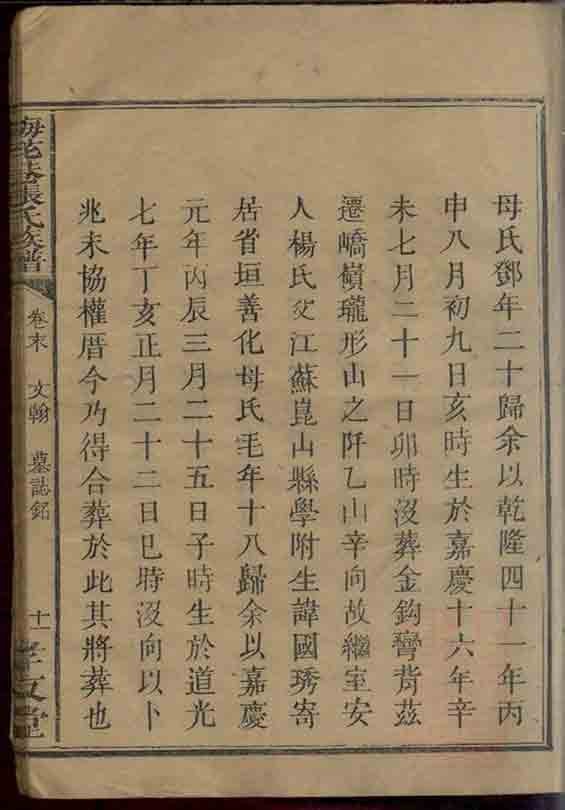 母氏鄧年二十歸余以乾隆四十一年丙
申八月初九日亥時生於嘉慶十六年辛
未七月二十一日卯時沒葬金鈎彎茲
遷嶠嶺瓏形山之阡乙山辛向故繼室安
人楊氏父江蘇崑山縣學附生諱國琇寄
居省垣善化母氏毛年十八歸余以嘉慶
元年丙辰三月二十五日子時生於道光
七年丁亥正月二十二日巳時沒向以卜
兆未協權厝今乃得合葬於此其將葬也
張氏族譜
卷末 文翰 墓誌銘
十一
堂